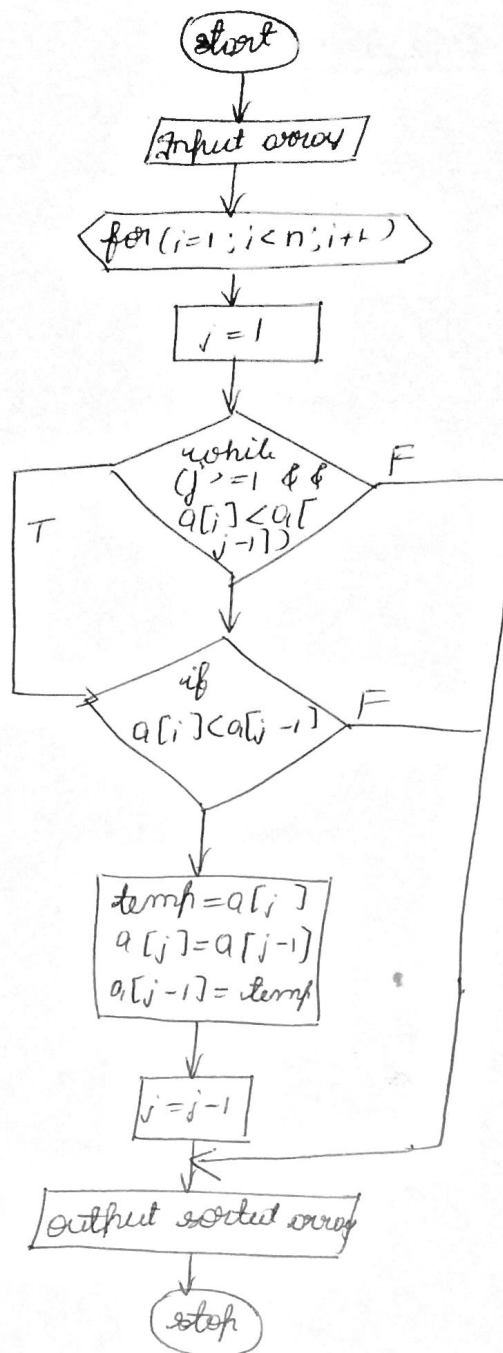 start
Input array
for (i=1; i<n; i++)
j = 1
while
F
(j >=1 &&
a[j] < a[
j-1])
T
if
F
a[j] < a[j-1]
temp = a[j]
a[j] = a[j-1]
a[j-1] = temp
j = j-1
output sorted array
stop